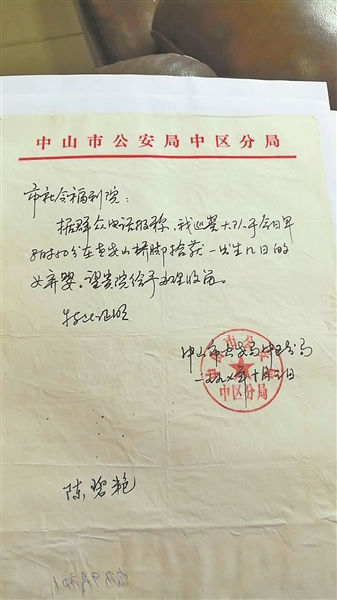 中山市公安局中区分局
市社会福利院：
据群众电话报称，我巡警大队于今日早
8时50分在老安山桥脚拾获一出生几日的
女弃婴，望贵院给予办理收容。
特此证明
中山市公安局中区分局
一九九七年十月三日
中区分局
陈碧艳